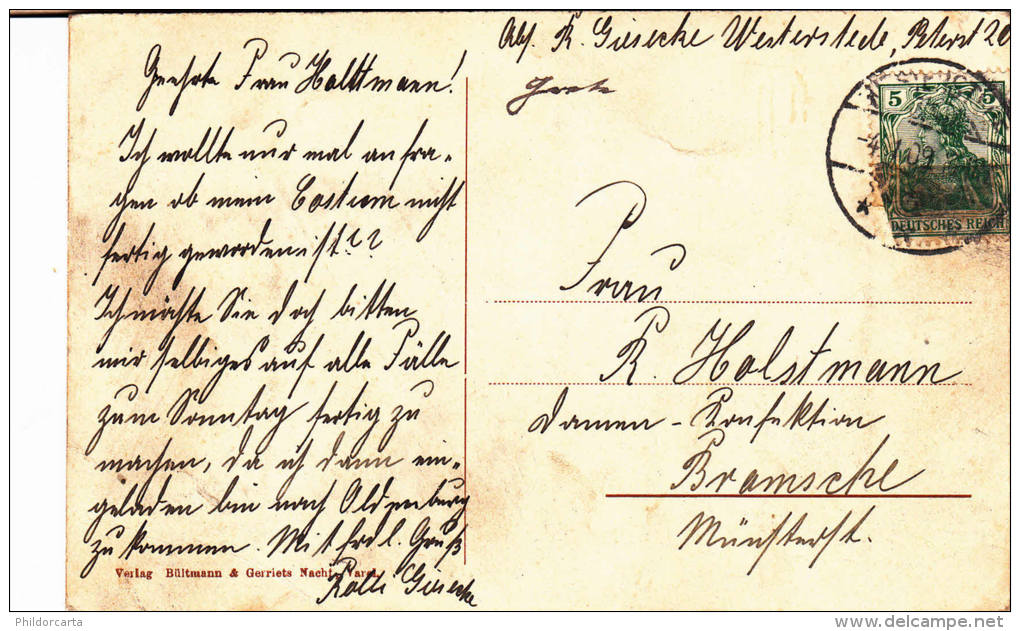 Abs. R. Giesecke Westerstede, Peterst 20
Geehrte Frau Holstmann!
Ich wollte nur mal anfra-
gen ob mein Costium nicht
fertig geworden ist??
Ich möchte Sie doch bitten
mir selbiges auf alle Fälle
zum Sonntag fertig zu
machen, da ich dann ein-
geladen bin nach Oldenburg
zu kommen. Mit frdl. Gruß
Giesecke
Verlag Bültmann & Gerriets Nachf. Varel.
5 5
DEUTSCHES REICH
09
Frau
R. Holstmann
Damen-Konfektion
Bramsche
Münsterst.
Phildorcarta
delcampe.net